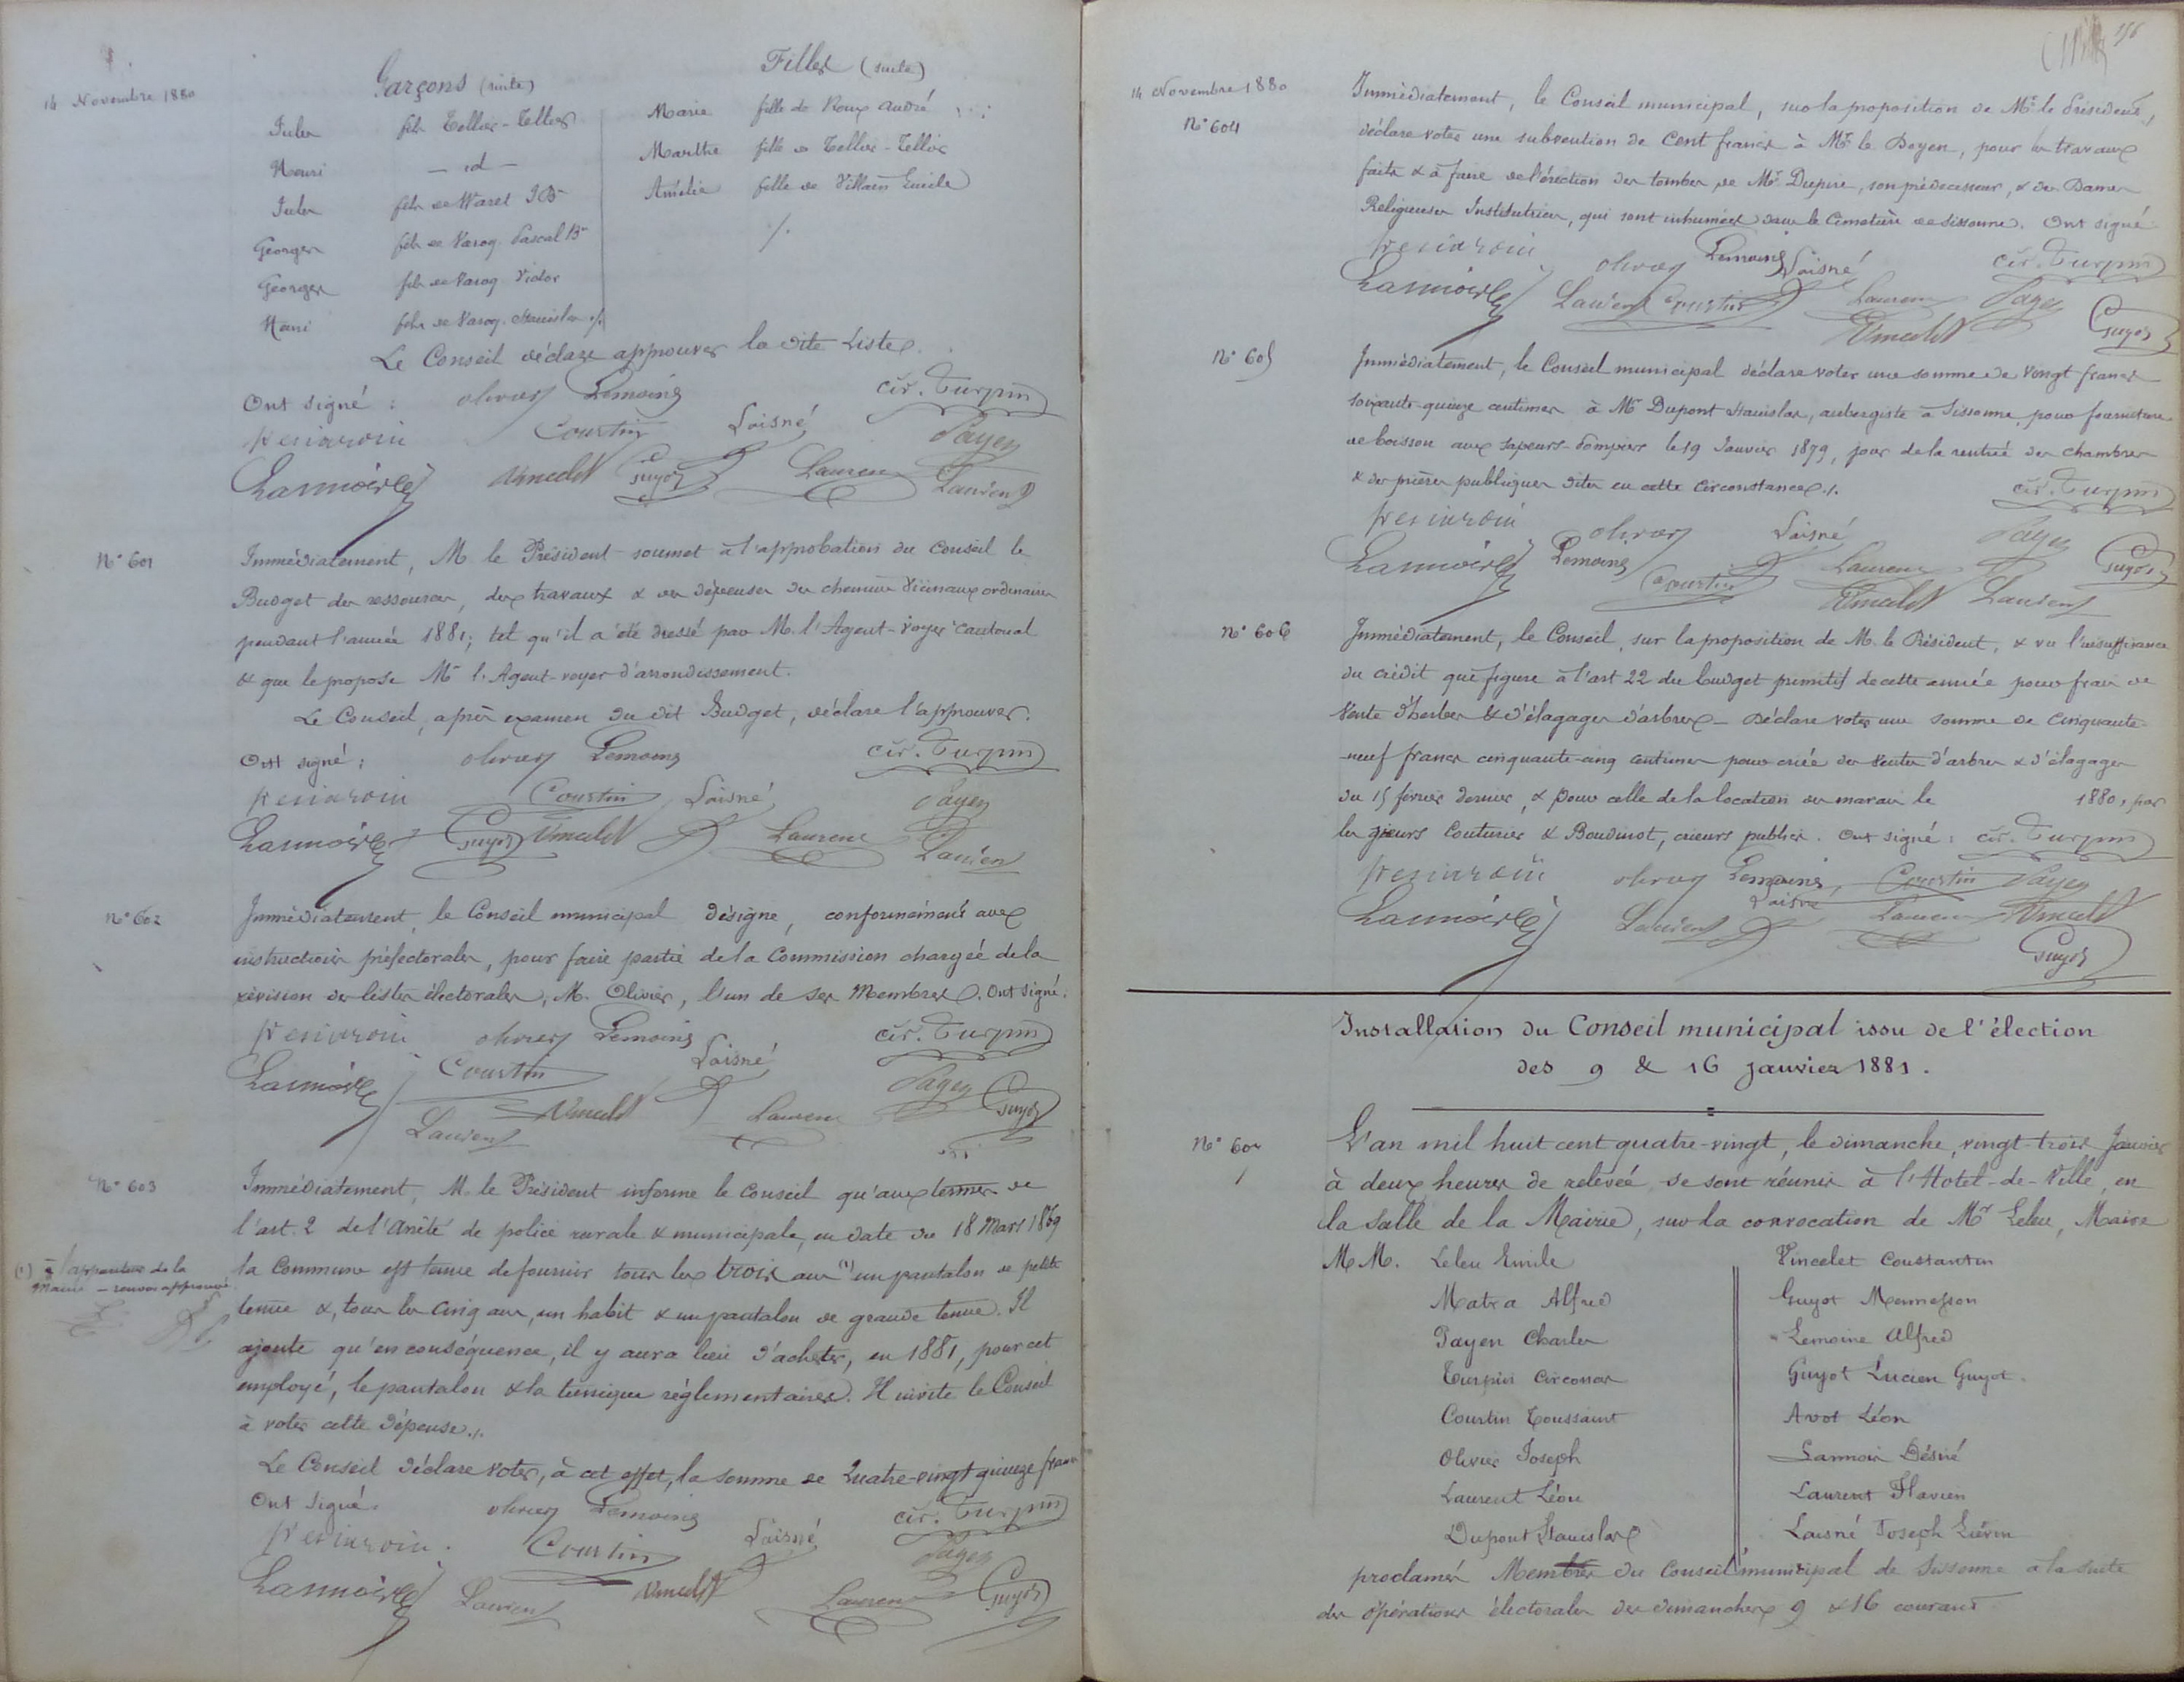 14 Novembre 1880
Garçons (suite)
Jules fils Tellier-Tellier
Henri — id —
Jules fils de Waret JB
Georges fils de Varoq. Pascal Bte
Georges fils de Varoq Victor
Henri fils de Varoq. Stanislas ./.
Filles (suite)
Marie fille de Roux André
Marthe fille de Tellier-Tellier
Amélie fille de Villain Emile
./.
Le Conseil déclare approuver la dite Liste.
Ont signé : olivier Lemoine cir. Turpin
Courtin Laisné Payen
Lannoir Vincelet Guyot Laurent Laurent
N° 601
Immédiatement, M le Président soumet à l'approbation du Conseil le
Budget des ressources, des travaux & des dépenses des chemins vicinaux ordinaires
pendant l'année 1881; tel qu'il a été dressé par M. l'Agent-voyer cantonal
& que le propose Mr l'Agent-voyer d'arrondissement.
Le Conseil, après examen du dit Budget, déclare l'approuver.
Ont signé : olivier Lemoine cir. Turpin
Courtin Laisné Payen
Lannoir Guyot Vincelet Laurent Laurent
N° 602
Immédiatement, le Conseil municipal désigne, conformément aux
instructions préfectorales, pour faire partie de la Commission chargée de la
révision des listes électorales, M. Olivier, l'un de ses Membres. Ont signé :
olivier Lemoine cir. Turpin
Lannoir Courtin Laisné Payen Guyot
Laurent Vincelet Laurent
N° 603
Immédiatement, M. le Président informe le Conseil qu'aux termes de
l'art. 2 de l'Arrêté de police rurale & municipale, en date du 18 Mars 1869
la Commune est tenue de fournir tous les trois ans (1) un pantalon de petite
tenue &, tous les cinq ans, un habit & un pantalon de grande tenue. Il
ajoute qu'en conséquence, il y aura lieu d'acheter, en 1881, pour cet
employé, le pantalon & la tunique réglementaires. Il invite le Conseil
à voter cette dépense ./.
(1) à l'appariteur de la
Mairie — renvoi approuvé
Le Conseil déclare voter, à cet effet, la somme de Quatre-vingt quinze francs
Ont signé : olivier Lemoine cir. Turpin
Courtin Laisné Payen
Lannoir Laurent Vincelet Laurent Guyot
14 Novembre 1880
N° 604
Immédiatement, le Conseil municipal, sur la proposition de Mr le Président,
déclare voter une subvention de Cent francs à Mr le Doyen, pour les travaux
faits & à faire de l'érection des tombes de Mr Dupire, son prédécesseur, & des Dames
Religieuses Institutrices, qui sont inhumées dans le Cimetière de Sissonne. Ont signé
olivier Lemoine Laisné cir. Turpin
Lannoir Laurent Courtin Laurent Payen
Vincelet Guyot
N° 605
Immédiatement, le Conseil municipal déclare voter une somme de Vingt francs
soixante-quinze centimes à Mr Dupont Stanislas, aubergiste à Sissonne, pour fourniture
de boisson aux sapeurs-Pompiers le 19 Janvier 1879, jour de la rentrée des chambres
& des prières publiques dites en cette circonstance ./. cir. Turpin
olivier Laisné Payen
Lannoir Lemoine Courtin Laurent Guyot
Vincelet Laurent
N° 606
Immédiatement, le Conseil, sur la proposition de M. le Président, & vu l'insuffisance
du crédit que figure à l'art 22 du budget primitif de cette année pour frais de
vente d'herbes & d'élagages d'arbres — Déclare voter une somme de Cinquante-
-neuf francs cinquante-cinq centimes pour criée des ventes d'arbres & d'élagages
du 15 février dernier, & pour celle de la location des marais le 1880, par
les sieurs Couturier & Boudinot, crieurs publics. Ont signé : cir. Turpin
olivier Lemoine, Courtin Payen
Laisné
Lannoir Laurent Laurent Vincelet
Guyot
Installation du Conseil municipal issu de l'élection
des 9 & 16 janvier 1881.
L'an mil huit cent quatre-vingt, le dimanche, vingt-trois Janvier
à deux heures de relevée, se sont réunis à l'Hotel-de-Ville, en
la Salle de la Mairie, sur la convocation de Mr Leleu, Maire
M M. Leleu Emile
Matra Alfred
Payen Charles
Turpin Circoncis
Courtin Toussaint
Olivier Joseph
Laurent Léon
Dupont Stanislas
Vincelet Constantin
Guyot Mennesson
Lemoine Alfred
Guyot Lucien Guyot.
Avot Léon
Lannoir Désiré
Laurent Flavien
Laisné Joseph Liévin
proclamés Membres du Conseil municipal de Sissonne à la suite
des opérations électorales des dimanches 9 & 16 courant